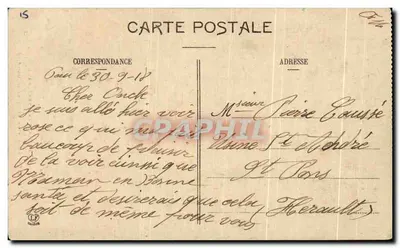 15
CARTE POSTALE
CORRESPONDANCE
ADRESSE
Paris le 30-9-18
Cher Oncle
je suis allé hier voir
rose ce qui m'a fait
beaucoup de plaisir
de la voir ainsi que
maman en bonne
santé et desirerais que cela
soit de même pour vous
Msieur Pierre Caussé
Usine St André
St Pons
(Herault)
CARTE POSTALE